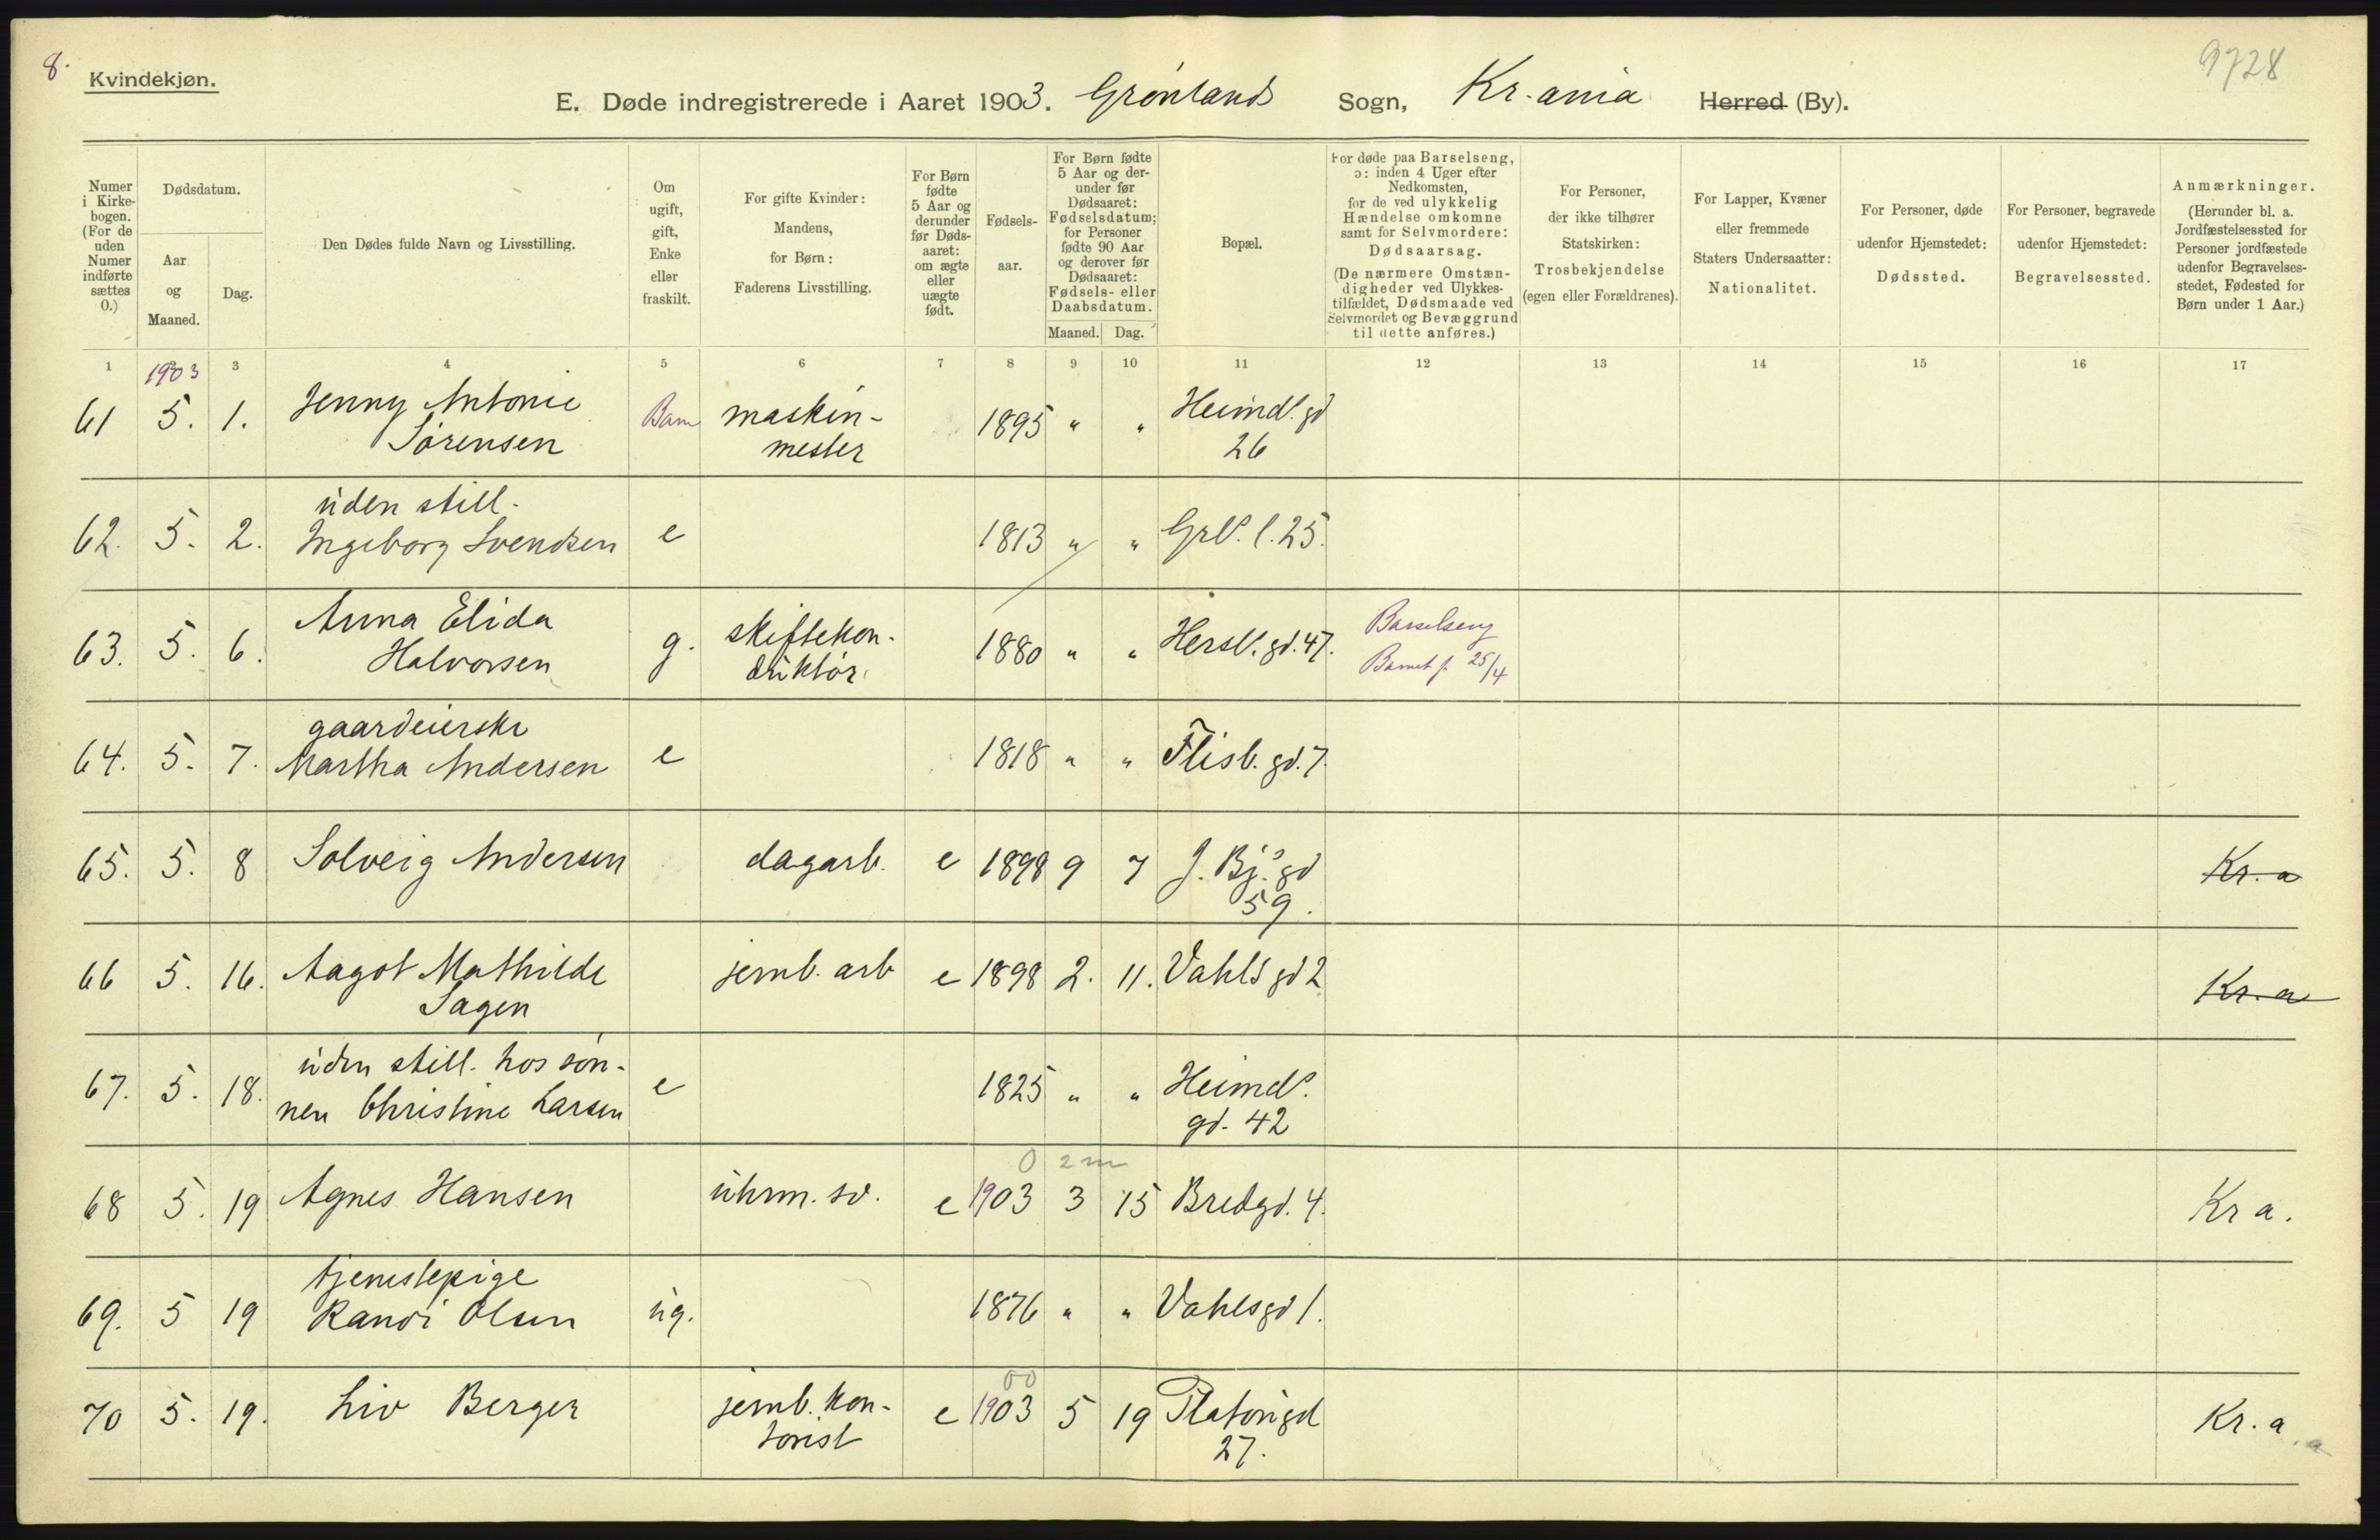 8.
Kvindekjøn.
9728
E. Døde indregistrerede i Aaret 1903. Grønlands Sogn, Kr.ania Herred (By).
Numer i Kirkebogen. (For de uden Numer indførte sættes 0.)
Dødsdatum.
Aar og Maaned.
Dag.
Den Dødes fulde Navn og Livsstilling.
Om ugift, gift, Enke eller fraskilt.
For gifte Kvinder: Mandens, for Børn: Faderens Livsstilling.
For Børn fødte 5 Aar og derunder før Dødsaaret: om ægte eller uægte født.
Fødselsaar.
For Børn fødte 5 Aar og derunder før Dødsaaret: Fødselsdatum; for Personer fødte 90 Aar og derover før Dødsaaret: Fødsels- eller Daabsdatum.
Maaned. Dag.
Bopæl.
For døde paa Barselseng, ɔ: inden 4 Uger efter Nedkomsten, for de ved ulykkelig Hændelse omkomne samt for Selvmordere: Dødsaarsag. (De nærmere Omstændigheder ved Ulykkestilfældet, Dødsmaade ved Selvmordet og Bevæggrund til dette anføres.)
For Personer, der ikke tilhører Statskirken: Trosbekjendelse (egen eller Forældrenes).
For Lapper, Kvæner eller fremmede Staters Undersaatter: Nationalitet.
For Personer, døde udenfor Hjemstedet: Dødssted.
For Personer, begravede udenfor Hjemstedet: Begravelsessted.
Anmærkninger. (Herunder bl. a. Jordfæstelsessted for Personer jordfæstede udenfor Begravelsesstedet, Fødested for Børn under 1 Aar.)
1 3 4 5 6 7 8 9 10 11 12 13 14 15 16 17
1903
61 5. 1. Jenny Antonie Sørensen Barn maskinmester 1895 " " Heimd. gd 26
62. 5. 2. uden still. Ingeborg Svendsen e 1813 " " Grl. l. 25.
63. 5. 6. Anna Elida Halvorsen g. skiftekonduktør. 1880 " " Hersl. gd. 47. Barselseng Barnet f. 25/4
64. 5. 7. gaardeierske Martha Andersen e 1818 " " Flisb. gd. 7.
65. 5. 8 Solveig Andersen dagarb. e 1898 9 7 J. Bj. gd 59. Kr. a
66 5. 16. Aagot Mathilde Sagen jernb. arb e 1898 2. 11. Vahls gd 2 Kr. a
67. 5. 18. uden still. hos sønnen Christine Larsen e 1825 " " Heimd. gd. 42
0 2 m
68 5. 19 Agnes Hansen uhrm. sv. e 1903 3 15 Bredgd. 4. Kr a.
69. 5 19 tjenestepige Randi Olsen ug. 1876 " " Vahlsgd 1.
00
70 5. 19. Liv Berger jernb. kontorist e 1903 5 19 Platougd 27. Kr. a